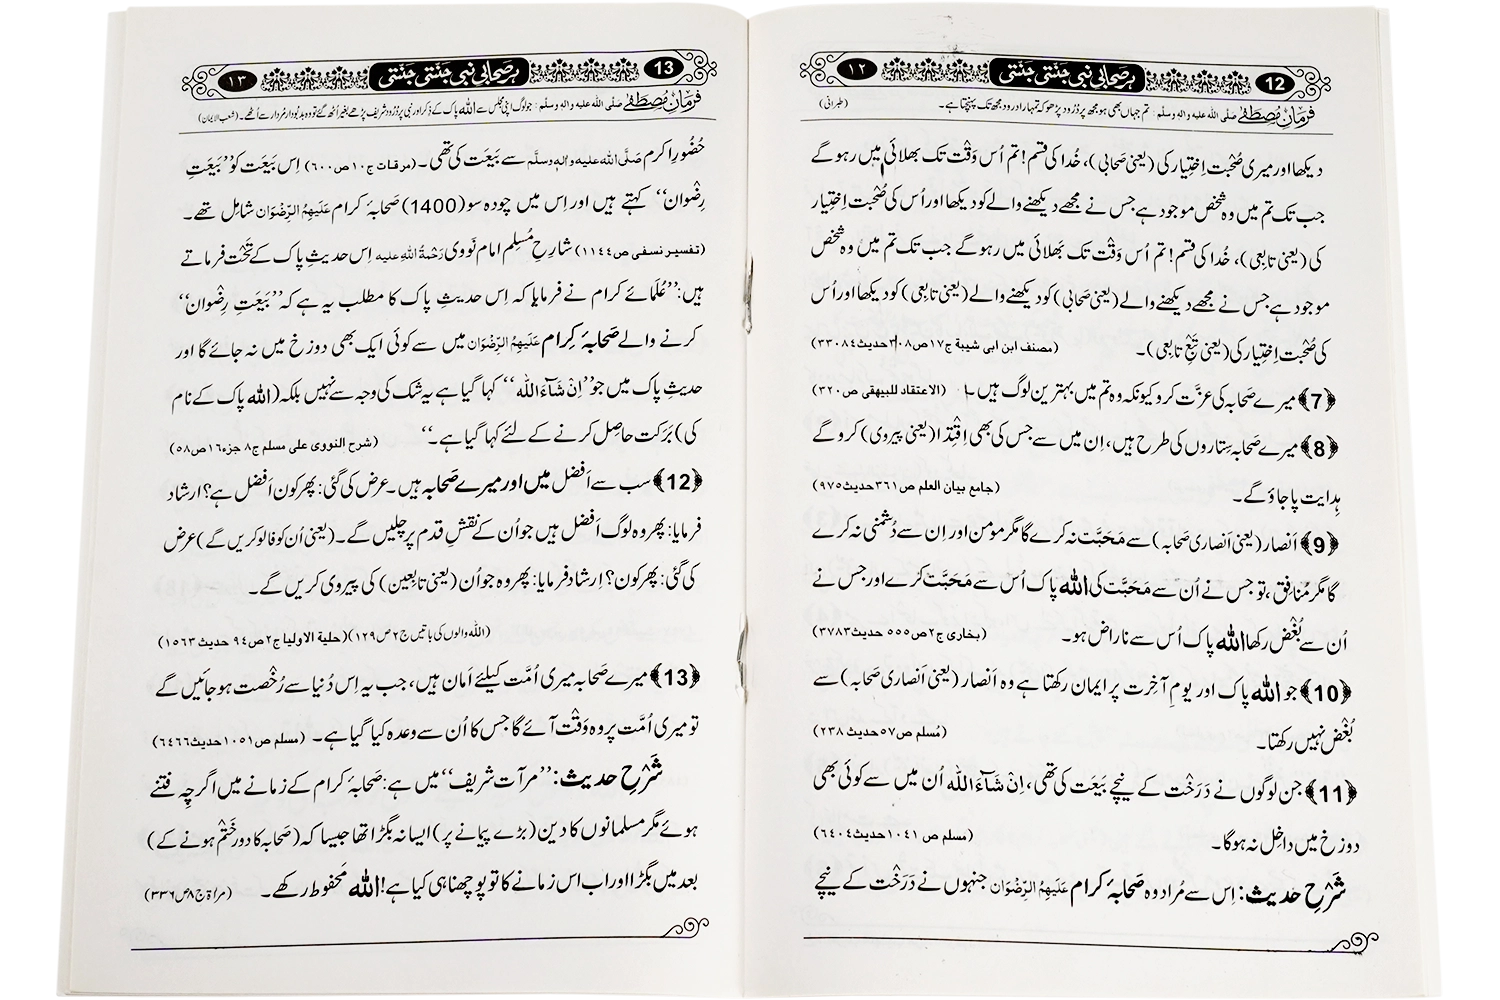 12 ہر صحابیِ نبی جنّتی جنّتی ١٢
فرمانِ مُصطفٰے صلی اللہ علیہ والہ وسلم : تم جہاں بھی ہو مجھ پر دُرُود پڑھو کہ تمہارا درود مجھ تک پہنچتا ہے۔ (طبرانی)
دیکھا اور میری صُحبت اِختِیار کی (یعنی صحابی)، خُدا کی قسم! تم اُس وَقْت تک بھلائی میں رہو گے
جب تک تم میں وہ شخص موجود ہے جس نے مجھے دیکھنے والے کو دیکھا اور اُس کی صُحْبت اِختِیار
کی (یعنی تابِعی)، خُدا کی قسم! تم اُس وَقْت تک بھلائی میں رہو گے جب تک تم میں وہ شخص
موجود ہے جس نے مجھے دیکھنے والے (یعنی صحابی) کو دیکھنے والے (یعنی تابِعی) کو دیکھا اور اُس
کی صُحْبت اِختِیار کی (یعنی تَبْعِ تابِعی)۔ (مصنف ابن ابی شیبة ج١٧ص٣٠٨حدیث٣٣٠٨٤)
﴿7﴾ میرے صَحابہ کی عزّت کرو کیونکہ وہ تم میں بہترین لوگ ہیں۔ (الاعتقاد للبیهقی ص٣٢٠)
﴿8﴾ میرے صَحابہ ستاروں کی طرح ہیں، اِن میں سے جس کی بھی اِقْتِدا (یعنی پیروی) کرو گے
ہِدایت پا جاؤ گے۔ (جامع بیان العلم ص٣٦١حدیث٩٧٥)
﴿9﴾ اَنصار (یعنی اَنصاری صَحابہ) سے مَحَبَّت نہ کرے گا مگر مومن اور اِن سے دُشمنی نہ کرے
گا مگر مُنافِق، تو جس نے اُن سے مَحَبَّت کی اللّٰہ پاک اُس سے مَحَبَّت کرے اور جس نے
اُن سے بُغْض رکھا اللّٰہ پاک اُس سے ناراض ہو۔ (بخاری ج٢ص٥٥٥ حدیث٣٧٨٣)
﴿10﴾ جو اللّٰہ پاک اور یومِ آخِرت پر ایمان رکھتا ہے وہ اَنصار (یعنی اَنصاری صَحابہ) سے
بُغْض نہیں رکھتا۔ (مُسلم ص٥٧حدیث ٢٣٨)
﴿11﴾ جن لوگوں نے دَرَخْت کے نیچے بَیعَت کی تھی، اِنْ شَآءَ اللّٰه اُن میں سے کوئی بھی
دوزخ میں داخِل نہ ہوگا۔ (مسلم ص ١٠٤١ حدیث٦٤٠٤)
شَرْحِ حَدیث: اِس سے مُراد وہ صَحابۂ کرام عَلَیہِمُ الرِّضْوَان جنہوں نے دَرَخْت کے نیچے
13 ہر صحابیِ نبی جنّتی جنّتی ١٣
فرمانِ مُصطفٰے صلی اللہ علیہ والہ وسلم : جو لوگ اپنی مجلس سے اللّٰہ پاک کے ذِکر اور نبی پر دُرُود شریف پڑھے بغیر اُٹھ گئے تو وہ بدبُودار مُردار سے اُٹھے۔ (شعب الایمان)
حُضُورِ اکرم صَلَّی اللہ علیہ واٰلہٖ وسلَّم سے بَیعَت کی تھی۔ (مرقات ج١٠ص٦٠٠) اِس بَیعَت کو ’’بَیعَتِ
رِضْوان‘‘ کہتے ہیں اور اِس میں چودہ سو (1400) صَحابۂ کرام عَلَیہِمُ الرِّضْوَان شامِل تھے۔
(تفسیر نسفی ص١١٤٤) شارِحِ مُسْلِم امام نَوَوِی رَحْمَةُ اللہ علیہ اِس حدیثِ پاک کے تَحْت فرماتے
ہیں: ’’عُلَمائے کرام نے فرمایا کہ اِس حدیثِ پاک کا مطلب یہ ہے کہ ’’بَیعَتِ رِضْوان‘‘
کرنے والے صَحابۂ کِرام عَلَیہِمُ الرِّضْوَان میں سے کوئی ایک بھی دوزخ میں نہ جائے گا اور
حدیثِ پاک میں جو ’’اِنْ شَآءَ اللّٰه‘‘ کہا گیا ہے یہ شک کی وجہ سے نہیں بلکہ (اللّٰہ پاک کے نام
کی) بَرَکت حاصِل کرنے کے لئے کہا گیا ہے۔‘‘ (شرح النووی علی مسلم ج٨ جزء١٦ص٥٨)
﴿12﴾ سب سے اَفضل میں اور میرے صَحابہ ہیں۔ عرض کی گئی: پھر کون اَفضل ہے؟ ارشاد
فرمایا: پھر وہ لوگ اَفضل ہیں جو اُن کے نقشِ قدم پر چلیں گے۔ (یعنی اُن کو فالو کریں گے) عرض
کی گئی: پھر کون؟ اِرشاد فرمایا: پھر وہ جو اُن (یعنی تابِعین) کی پیروی کریں گے۔
(اللہ والوں کی باتیں ج٢ص١٢٩) (حلیة الاولیا ج٢ص٩٤ حدیث ١٥٦٣)
﴿13﴾ میرے صَحابہ میری اُمّت کیلئے اَمان ہیں، جب یہ اِس دُنیا سے رُخْصت ہو جائیں گے
تو میری اُمَّت پر وہ وَقْت آئے گا جس کا اُن سے وعدہ کیا گیا ہے۔ (مسلم ص١٠٥١حدیث٦٤٦٦)
شَرْحِ حدیث: ’’مرآت شریف‘‘ میں ہے: صَحابۂ کرام کے زمانے میں اگرچِہ فتنے
ہوئے مگر مسلمانوں کا دین (بڑے پیمانے پر) ایسا نہ بگڑا تھا جیسا کہ (صَحابہ کا دور خَتْم ہونے کے)
بعد میں بگڑا اور اب اس زمانے کا تو پوچھنا ہی کیا ہے! اللّٰہ مَحفوظ رکھے۔ (مراٰة ج٨ص٣٣٦)